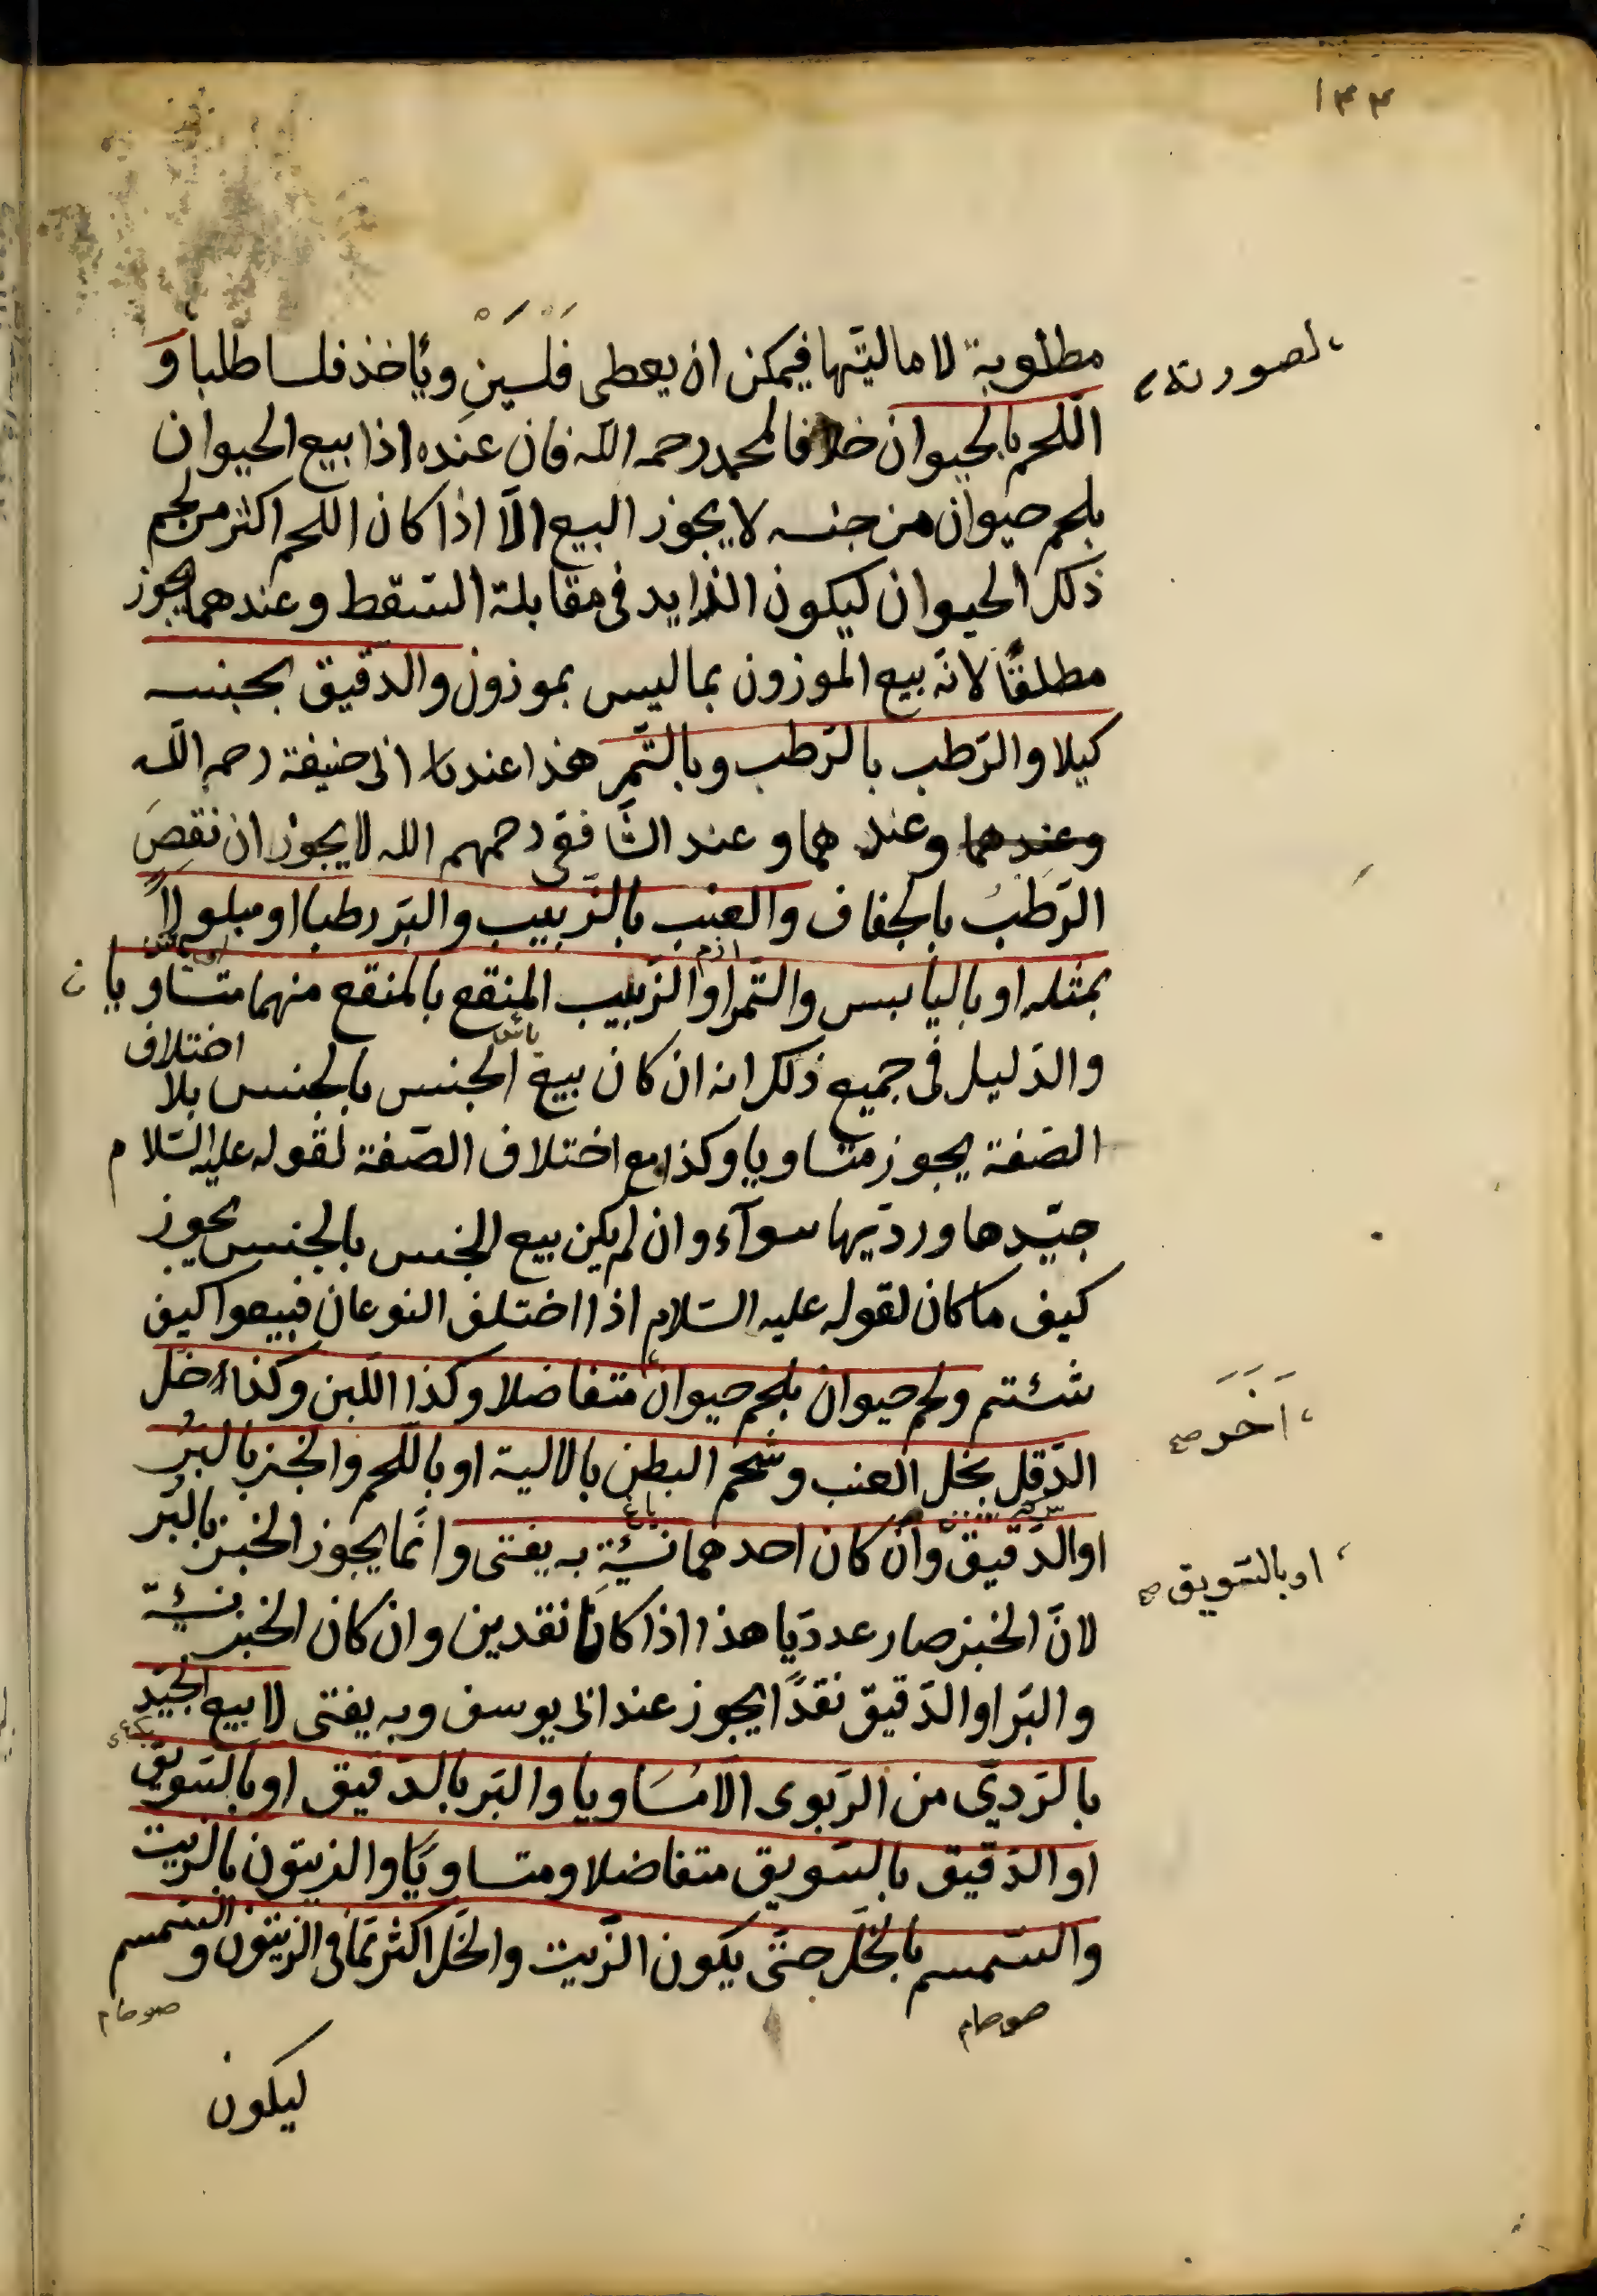 ١٣٣
مطلوبة لا ماليتها فيمكن ان يعطى فلسين ويأخذ فلسا طلبا و
لصورته
اللحم بالحيوان خلافا لمحمد رحمه الله فان عنده اذا بيع الحيوان
بلحم حيوان من جنسه لا يجوز البيع الّا اذا كان اللحم اكثر من لحم
ذلك الحيوان ليكون الزايد فى مقابلة السّقط وعندهما يجوز
مطلقًا لانّه بيع الموزون بما ليس بموزون والدّقيق بجنسه
كيلا والرّطب بالرّطب وبالتّمر هذا عند ابى حنيفة رحمه اللّه
وعندهما وعند هما وعند الشّافعى رحمهم الله لا يجوز ان نقصَ
الرّطبُ بالجفاف والعنب بالزّبيب والبرّ رطبا او مبلولاً
بمثله او باليابس والتّمر او الزّبيب المنقع بالمنقع منهما متساويا
والدّليل فى جميع ذلك انه ان كان بيع الجنس بالجنس بلا اختلاف
الصّفة يجوز متساويا وكذا مع اختلاف الصّفة لقوله عليه السّلام
جيّدها ورديّها سوآء وان لم يكن بيع الجنس بالجنس يجوز
كيف ما كان لقوله عليه السّلام اذا اختلف النوعان فبيعوا كيف
شئتم ولحم حيوان بلحم حيوان متفاضلا وكذا اللّبن وكذا خل
اخَر صح
الدّقل بخل العنب وشحم البطن بالالية او باللّحم والخبز بالبرّ
او الدّقيق وان كان احدهما نسئة به يفتى وانّما يجوز الخبز بالبرّ
او بالسّويق صح
لانّ الخبز صار عدديّا هذا اذا كانا نقدين وان كان الخبز نسئة
والبرّ او الدّقيق نقدًا يجوز عند ابى يوسف وبه يفتى لا بيع الجيّد
بالرّديّ من الرّبوى الّا مُسَاويا والبرّ بالدّقيق او بالسّويق
او الدّقيق بالسّويق متفاضلا ومتساويًا والزيتون بالزّيت
والسّمسم بالخّل حتّى يكون الزّيت والخّل اكثر ممّا فى الزّيتون والسّمسم
ليكون